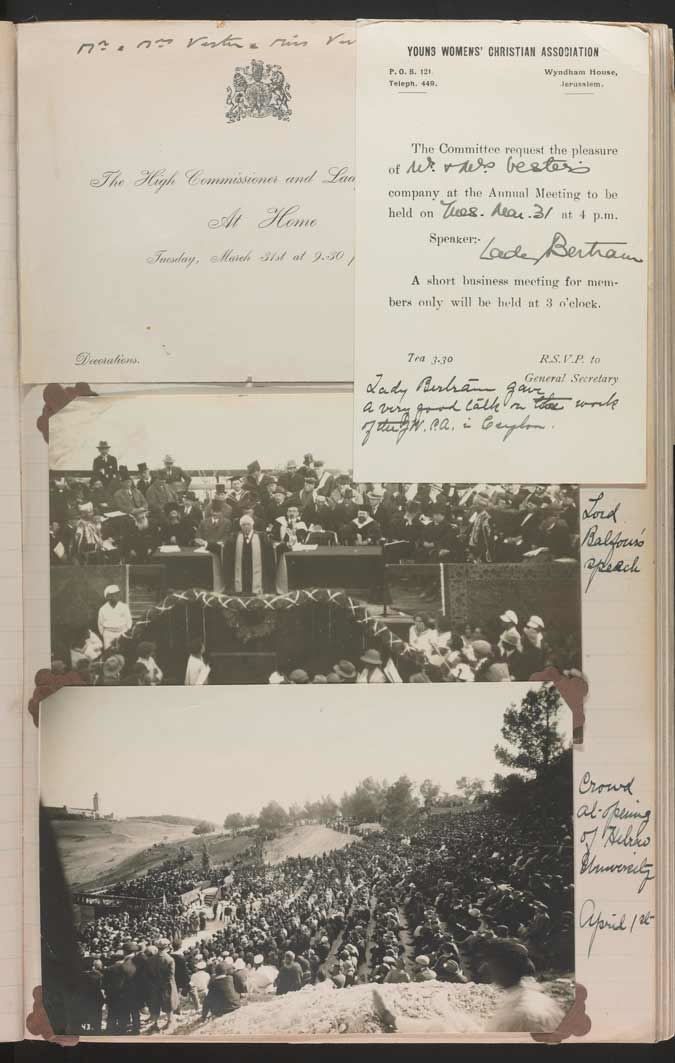 Mr & Mrs Vester & Miss Ves
The High Commissioner and Lad
At Home
Tuesday, March 31st at 9.30 p
Decorations.
YOUNG WOMENS' CHRISTIAN ASSOCIATION
P. O. B. 121
Teleph. 449.
Wyndham House,
Jerusalem.
The Committee request the pleasure
of Mr. & Mrs Vester's
company at the Annual Meeting to be
held on Tues. Mar. 31 at 4 p.m.
Speaker:- Lady Bertram
A short business meeting for mem-
bers only will be held at 3 o'clock.
Tea 3.30
R.S.V.P. to
General Secretary
Lady Bertram gave
a very good talk on the work
of the Y.W.C.A. in Ceylon.
Lord
Balfour's
speach
Crowd
at opening
of Hebrew
University
April 1st
43.